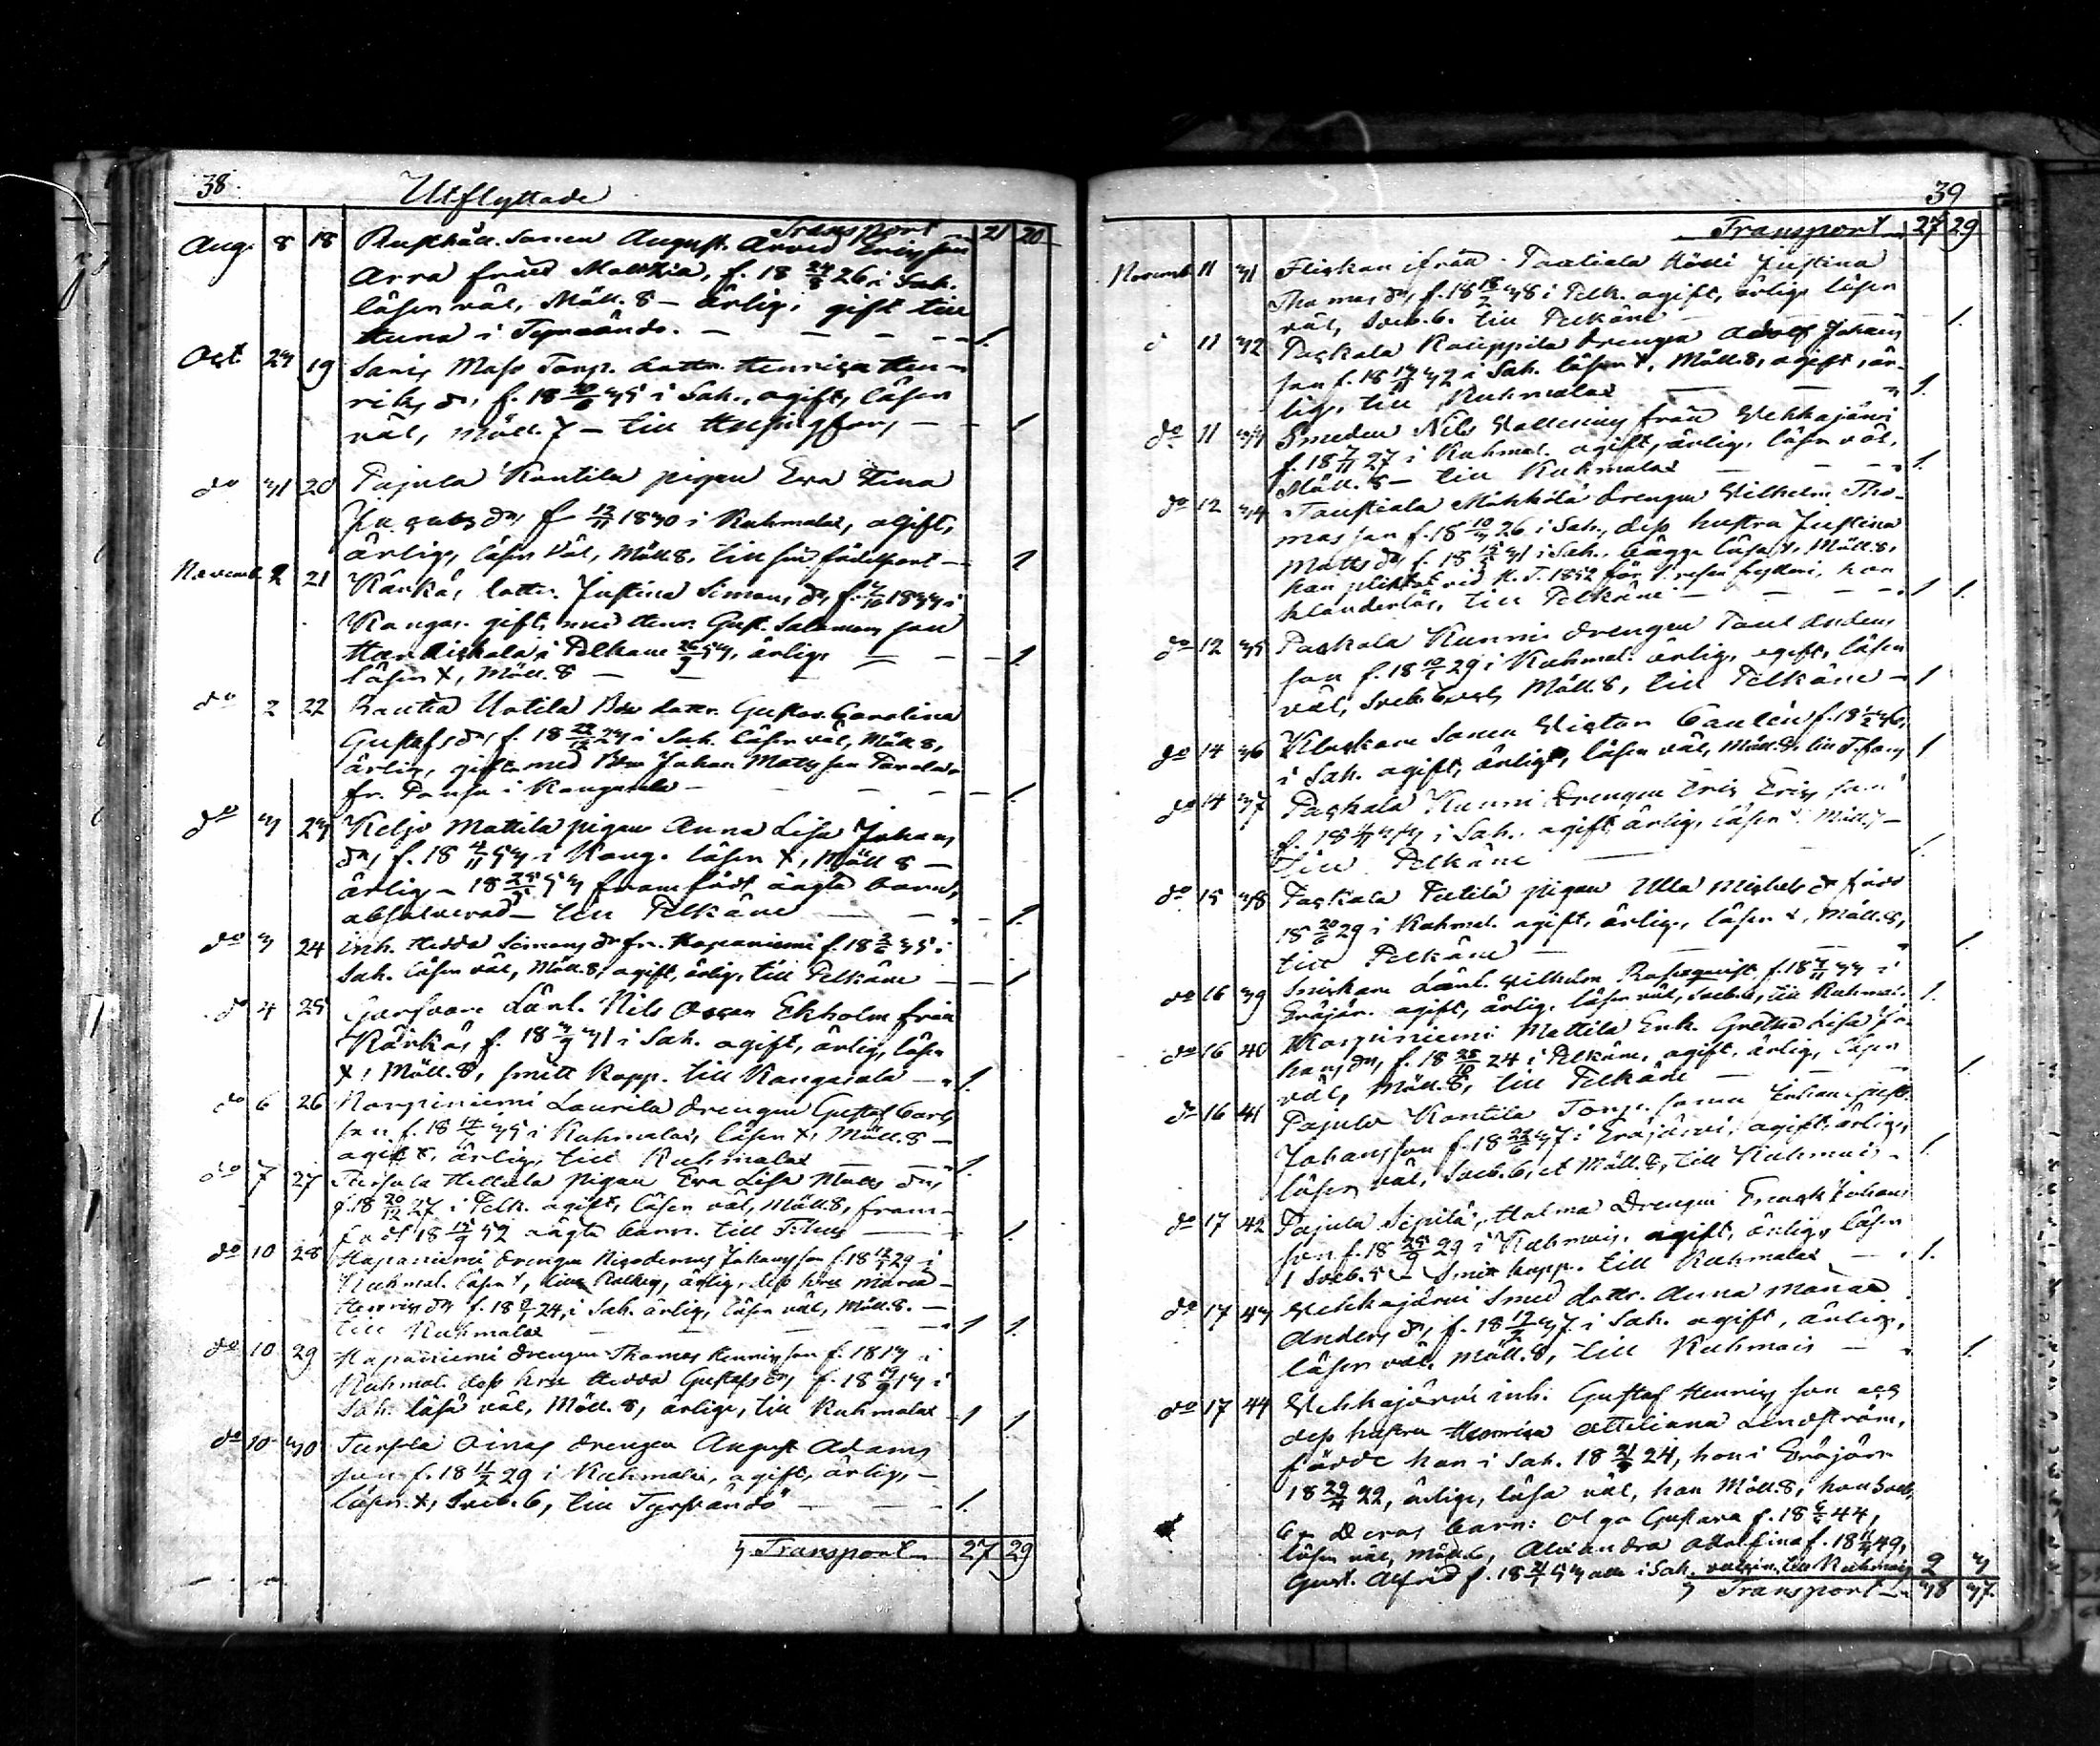 38.
Utflyttade
Transport 21 20
Aug. 8 18 Rusthåll. sonen August Arvid Ericsson
Arra från Mattila, f. 18 24/8 26 i Sah.
läser väl, Möll. 8 – ärlig, gift till
i Tyrvändö. – – – 1.
Oct 23 19 Saris Torp. dottr. Henrica Hen-
riks dr, f. 18 /6 35 i Sah., ogift, läser
väl, Möll. 7 – till Helsingfors, – – 1
do 31 20 Pajula Kantila pigan Eva Stina
Jacobs dr, f. 12/11 1830 i Kuhmalax, ogift,
ärlig, läser väl, Möll. 8, till sin födelseort – 1
Novemb. 2 21 Kärkäs dotter. Justina Simons dr, f. /10 1833 i
Kangas. gift med Henr. Gust. Salomons son
i Pelkäne 26/9 53, ärlig,
läser x, Möll. 8 – – – 1.
do 2 22 Rautia Uotila Bde dottr. Gustava Carolina
Gustafs dr, f. 18 /12 23 i Sah. läser väl, Möll. 8,
ärlig, gift med Bde Johan Mattsson
fr. i Kangasala – – – – 1.
do 3 23 Keljo Mattila pigan Anna Lisa Johans
dr, f. 18 4/11 i Kang. läser x, Möll 8 –
ärlig – 18 53 framfödt oägta barn,
absolverad – till Pelkäne – – – 1.
do 3 24 Inh. Hedda Simons dr fr. Haapaniemi f. 18 2/6 35 i
Sah. läser väl, Möll. 8, ogift, ärlig, till Pelkäne – – 1
do 4 25 Garfvare Lärl. Nils Oscar Ekholm från
Kärkäs f. 18 /9 31 i Sah. ogift, ärlig, läser
x, Möll. 8, smitt kopp. till Kangasala – " 1.
do 6 26 Karpiniemi Laurila drengen Gustaf Carls
son f. 18 35 i Kuhmalax, läser x, Möll. 8 –
ogift, ärlig, till Kuhmalax – – 1.
do 7 27 Tursola Hellula pigan Eva Lisa Matts dr,
f. 18 20/12 27 i Pelk. ogift, läser väl, Möll. 8, fram-
födt 18 /9 52 oägta barn. till T:hus – 1.
do 10 28 Haapaniemi drengen Nicodemus Johansson f. 18 29 i
Kuhmal. läser x, ärlig, dess hru Maria
Henrics dr f. 18 24, i Sah. ärlig, läser väl, Möll. 8. –
till Kuhmalax – – – 1 1.
do 10 29 Haapaniemi drengen Thomas Henricsson f. 1813 i
Kuhmal. dess hru Hedda Gustafs dr f. 18 19/9 13 i
Sah. läsa väl, Möll. 8, ärliga, till Kuhmalax – 1 1
do 10 30 Tursola Oinas drengen August Adams
son f. 18 11/2 29 i Kuhmalax, ogift, ärlig, –
läser x, Sveb. 6, till Tyrvändö – – – 1.
Transport 27 29
39
Transport 27 29
Novemb 11 31 Flickan ifrån Justina
Thomas dr, f. 18 18/2 38 i Pelk. ogift, ärlig, läser
väl, Sveb. 6. till Pelkäne – – 1.
d 11 32 Packala Kauppila drengen Adolf Johans
son f. 18 /11 32 i Sah. läser x, Möll. 8, ogift, är-
lig, till Kuhmalax – – 1.
do 11 33 Smeden Nils Wallenius från Vehkajärvi
f. 18 7/11 27 i Kuhmal. ogift, ärlig, läser väl,
Möll. 8 – till Kuhmalax – – – 1.
do 12 34 Taustiala drengen Wilhelm Tho-
mas son f. 18 10/ 26 i Sah., dess hustru Justina
Matts dr, f. 18 31 i Sah., bägge läsa x, Möll. 8,
han pliktat vid H. T. 1852 för 1. resan fylleri, hon
klanderlös, till Pelkäne – – – – 1 1.
do 12 35 Packala Kunni drengen Paul Anders
son f. 18 29 i Kuhmal. ärlig, ogift, läser
väl, Sveb. 6 Möll. 8, till Pelkäne – 1
do 14 36 Klockare sonen Victor f. 18 36,
i Sah. ogift, ärlig, läser väl, Möll. 8, till 1
do 14 37 Packala Kunni drengen Eric Erics son
f. 18 33 i Sah. ogift, ärlig, läser x, Möll. 7 –
till Pelkäne – – 1.
do 15 38 Packala pigan Ulla Michels dr född
18 20/6 29 i Kuhmal. ogift, ärlig, läser x, Möll. 8,
till Pelkäne – – – 1.
do 16 39 Snickare Lärl. Wilhelm f. 18 /11 33 i
Eräjär. ogift, ärlig, läser väl, Sveb. 6, till Kuhmal. 1.
do 16 40 Karpiniemi Mattila Enk. Gretha Lisa Jo-
hans dr, f. 18 28/10 24 i Pelkäne, ogift, ärlig, läser
väl, Möll. 8, till Pelkäne – – 1.
do 16 41 Pajula Kantila Torp. sonen
Johansson f. 18 22/6 37 i Eräjärvi, ogift, ärlig,
läser väl, Sveb. 6, et Möll. 8, till Kuhmois – 1.
do 17 42 Pajula Seppilä, Halma drengen Johans
son f. 18 28/9 29 i Kuhmois, ogift, ärlig, läser
Sveb. 5 – Smitt kopp. till Kuhmalax – – 1.
do 17 43 Vehkajärvi Smed dottr. Anna Maria
Anders dr, f. 18 37 i Sah. ogift, ärlig,
läser väl, Möll. 8, till Kuhmois – – 1.
do 17 44 Vehkajärvi inh. Gustaf Henrics son och
dess hustru Henrica Attiliana Lindström,
födde han i Sah. 18 24, hon i Eräjärv
18 29/4 22, ärliga, läsa väl, han Möll. 8, hon Sveb.
6 – Deras barn: Olga Gustava f. 18 44,
läser väl, Möll. 6, Alexandra Adolfina f. 18 49,
Gust. Alfrid f. 18 53 alla i Sah. till Kuhmois 2 3
Transport 38 37.